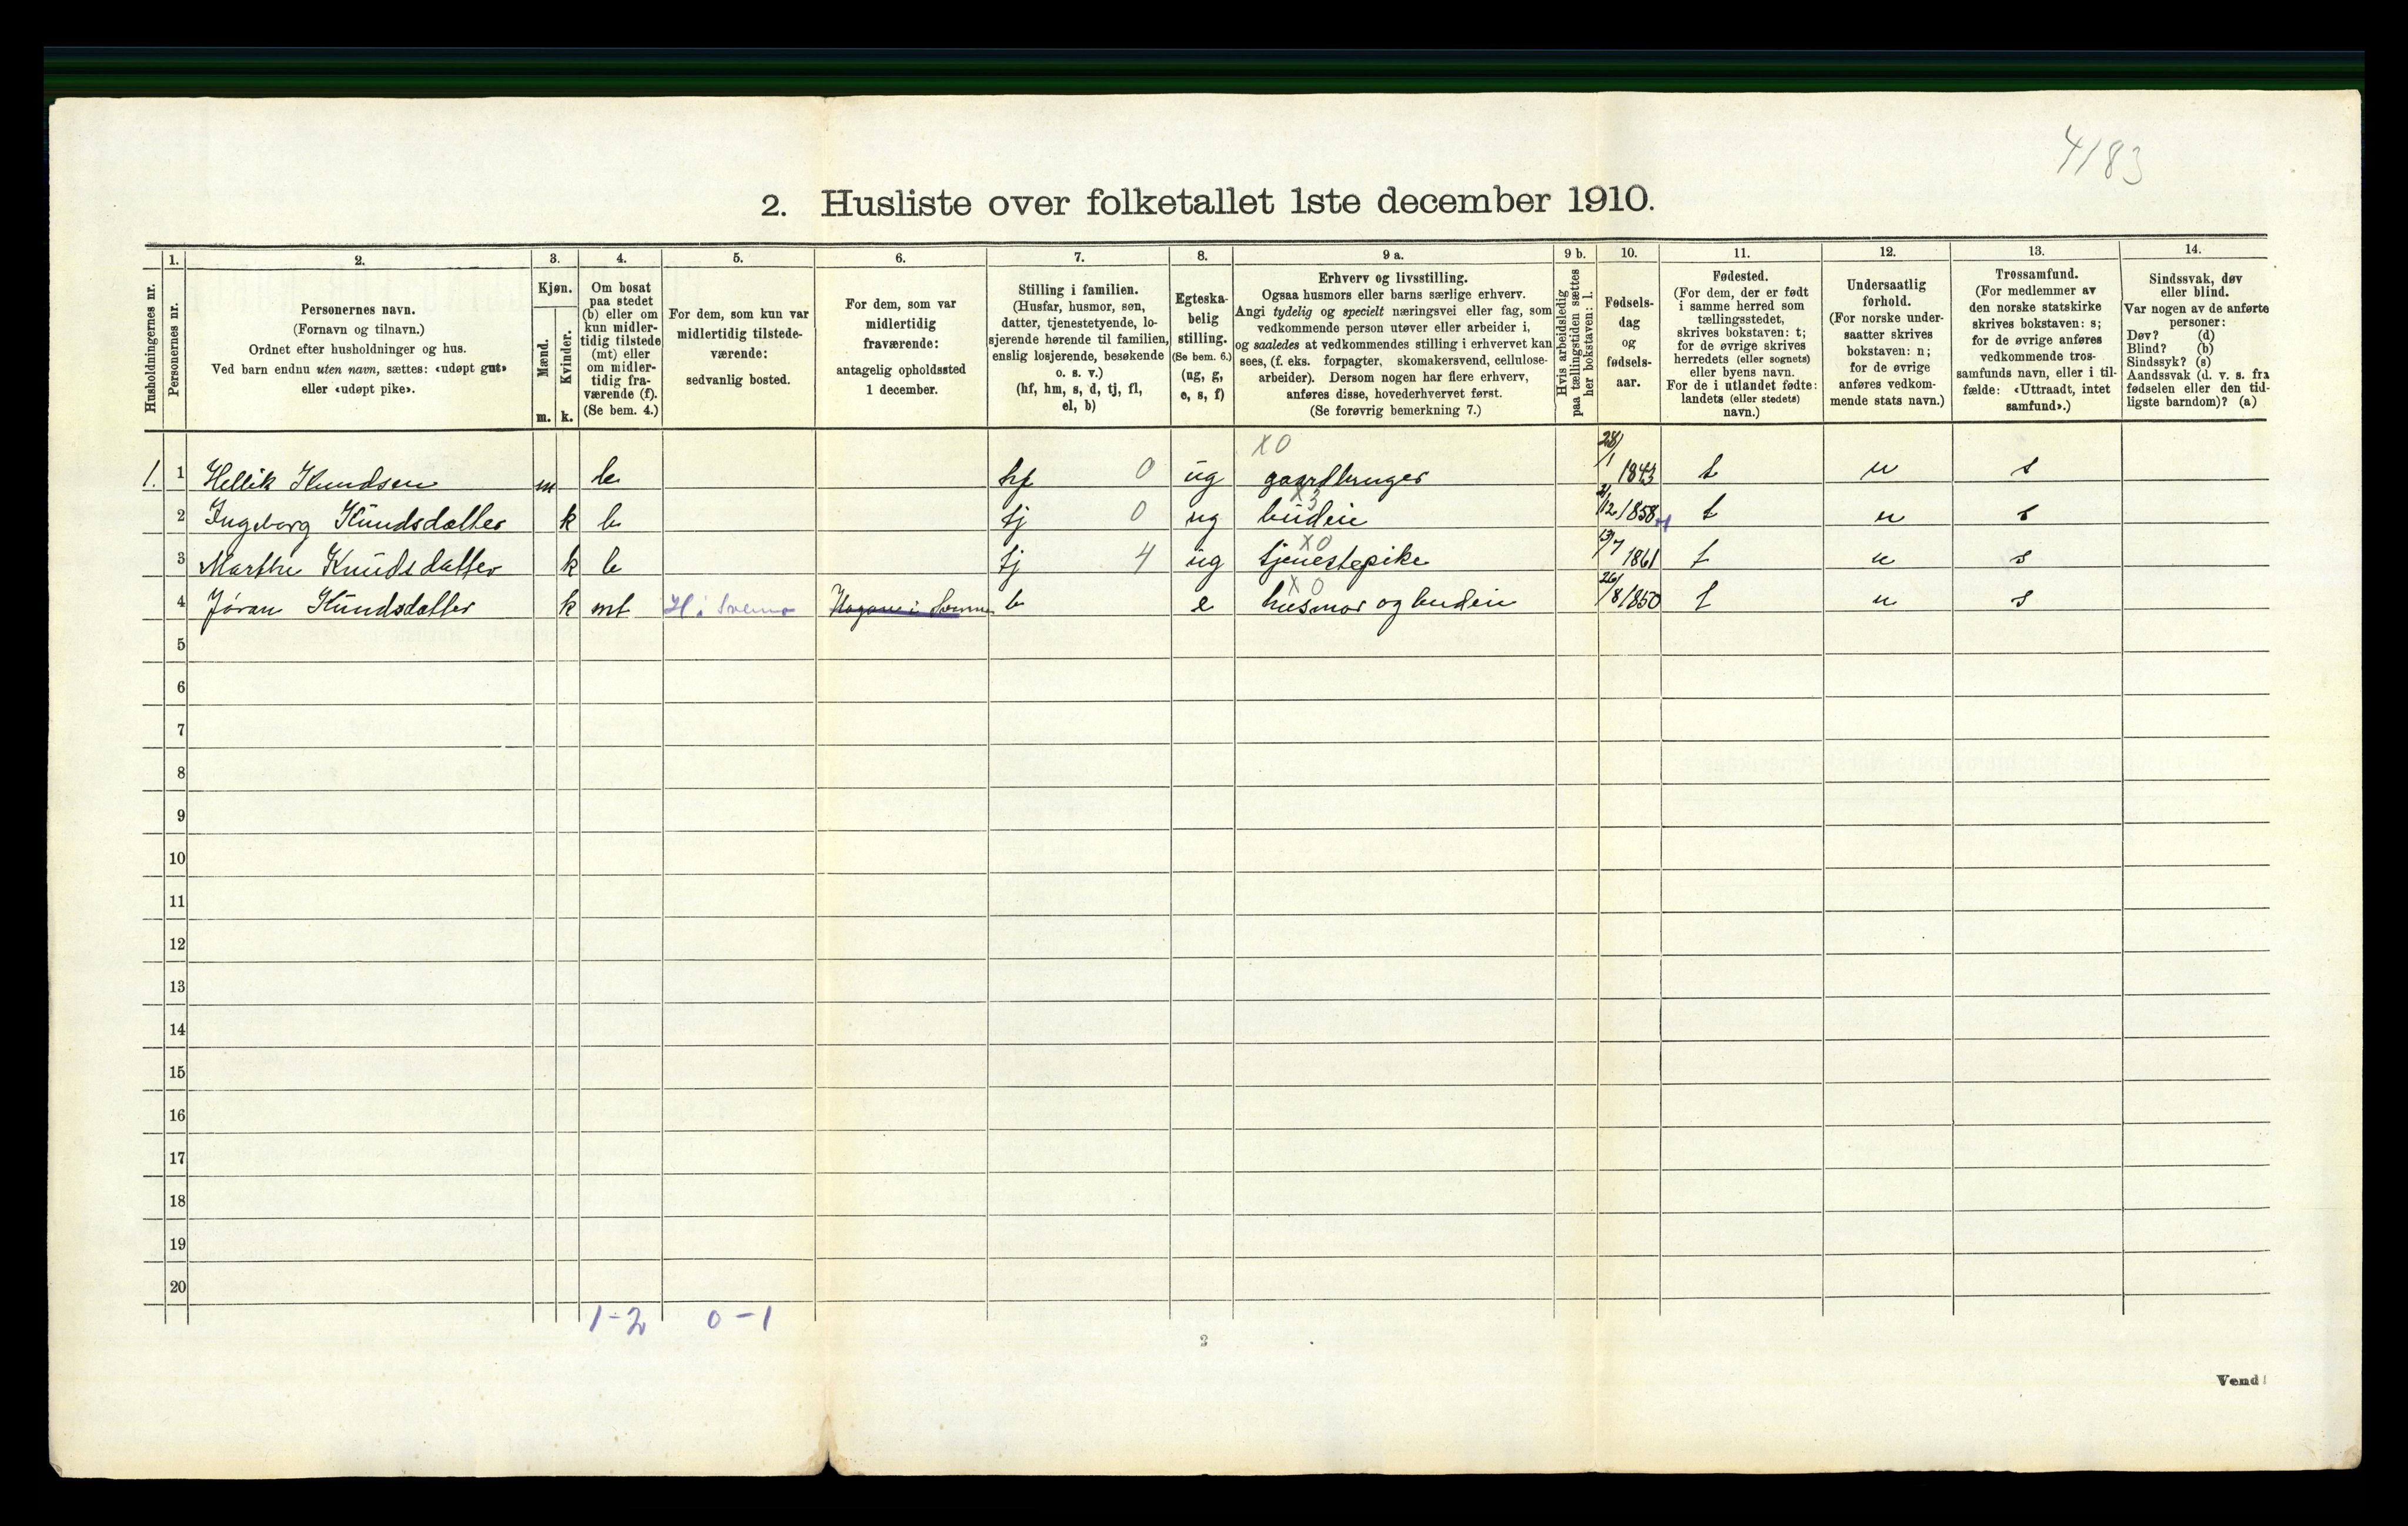 4183
2. Husliste over folketallet 1ste december 1910.
Husholdningernes nr.
1.
Personernes nr.
2.
Personernes navn.
(Fornavn og tilnavn.)
Ordnet efter husholdninger og hus.
Ved barn endnu uten navn, sættes: «udøpt gut»
eller «udøpt pike».
3.
Kjøn.
Mænd.
Kvinder.
m. k.
4.
Om bosat
paa stedet
(b) eller om
kun midler-
tidig tilstede
(mt) eller
om midler-
tidig fra-
værende (f).
(Se bem. 4.)
5.
For dem, som kun var
midlertidig tilstede-
værende:
sedvanlig bosted.
6.
For dem, som var
midlertidig
fraværende:
antagelig opholdssted
1 december.
7.
Stilling i familien.
(Husfar, husmor, søn,
datter, tjenestetyende, lo-
sjerende hørende til familien,
enslig losjerende, besøkende
o. s. v.)
(hf, hm, s, d, tj, fl,
el, b)
8.
Egteska-
belig
stilling.
(Se bem. 6.)
(ug, g,
e, s, f)
9 a.
Erhverv og livsstilling.
Ogsaa husmors eller barns særlige erhverv.
Angi tydelig og specielt næringsvei eller fag, som
vedkommende person utøver eller arbeider i,
og saaledes at vedkommendes stilling i erhvervet kan
sees, (f. eks. forpagter, skomakersvend, cellulose-
arbeider). Dersom nogen har flere erhverv,
anføres disse, hovederhvervet først.
(Se forøvrig bemerkning 7.)
9 b.
Hvis arbeidsledig
paa tællingstiden sættes
her bokstaven: l.
10.
Fødsels-
dag
og
fødsels-
aar.
11.
Fødested.
(For dem, der er født
i samme herred som
tællingsstedet,
skrives bokstaven: t;
for de øvrige skrives
herredets (eller sognets)
eller byens navn.
For de i utlandet fødte:
landets (eller stedets)
navn.)
12.
Undersaatlig
forhold.
(For norske under-
saatter skrives
bokstaven: n;
for de øvrige
anføres vedkom-
mende stats navn.)
13.
Trossamfund.
(For medlemmer av
den norske statskirke
skrives bokstaven: s;
for de øvrige anføres
vedkommende tros-
samfunds navn, eller i til-
fælde: «Uttraadt, intet
samfund».)
14.
Sindssvak, døv
eller blind.
Var nogen av de anførte
personer:
Døv? (d)
Blind? (b)
Sindssyk? (s)
Aandssvak (d. v. s. fra
fødselen eller den tid-
ligste barndom)? (a)
X 0
1. 1 Hellik Knudsen m b hf 0 ug gaardbruger 28/1 1843 t n s
X 3
2 Ingeborg Knudsdatter k b tj 0 ug budeie /12 1858 t n s
X 0
3 Marthe Knudsdatter k b tj 4 ug tjenestepike 13/7 1861 t n s
X 0
4 Jøran Knudsdatter k mt b e husmor og budeie 26/8 1850 t n s
5
6
7
8
9
10
11
12
13
14
15
16
17
18
19
20
1-2 0-1
2
Vend!